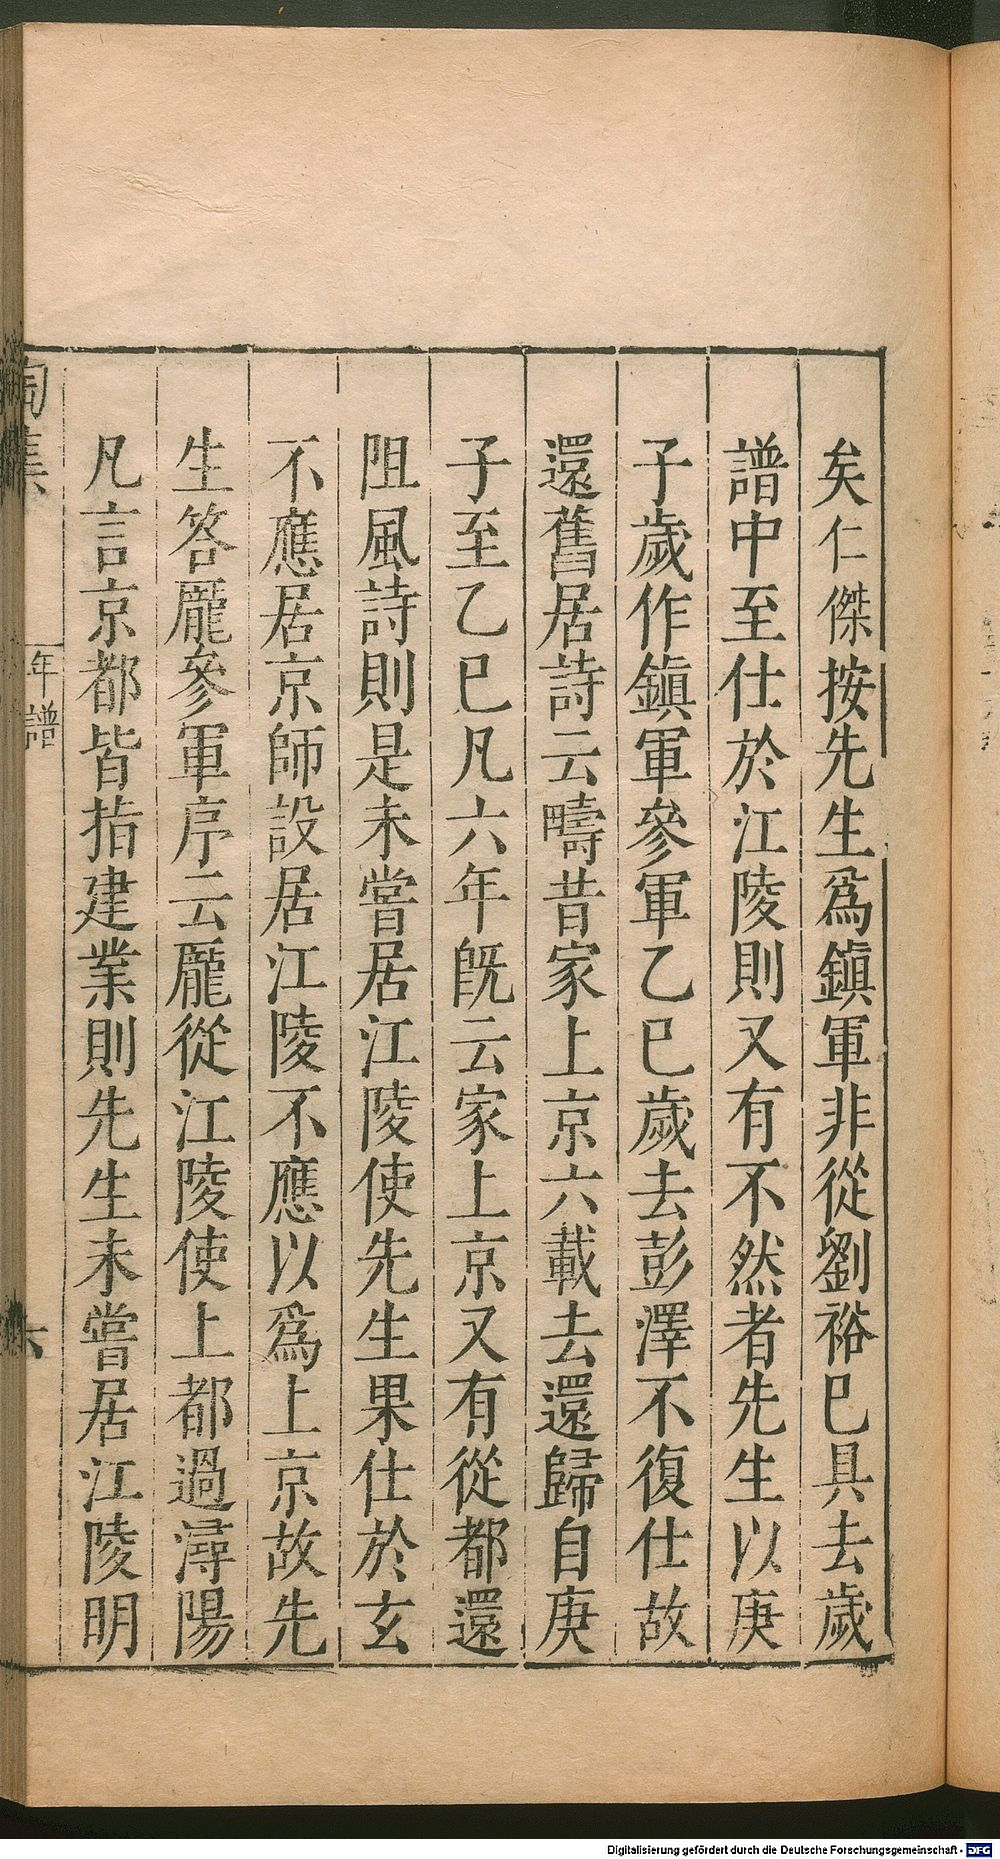 矣仁傑按先生爲鎮軍非從劉裕巳具去歲
譜中至仕於江陵則又有不然者先生以庚
子歲作鎮軍參軍乙巳歲去彭澤不復仕故
還舊居詩云疇昔家上京六載去還歸自庚
子至乙巳凡六年旣云家上京又有從都還
阻風詩則是未嘗居江陵使先生果仕於玄
不應居京師設居江陵不應以爲上京故先
生答龎參軍序云龎從江陵使上都過潯陽
凡言京都皆指建業則先生未嘗居江陵明
陶集
年譜
六
Digitalisierung gefördert durch die Deutsche Forschungsgemeinschaft - DFG